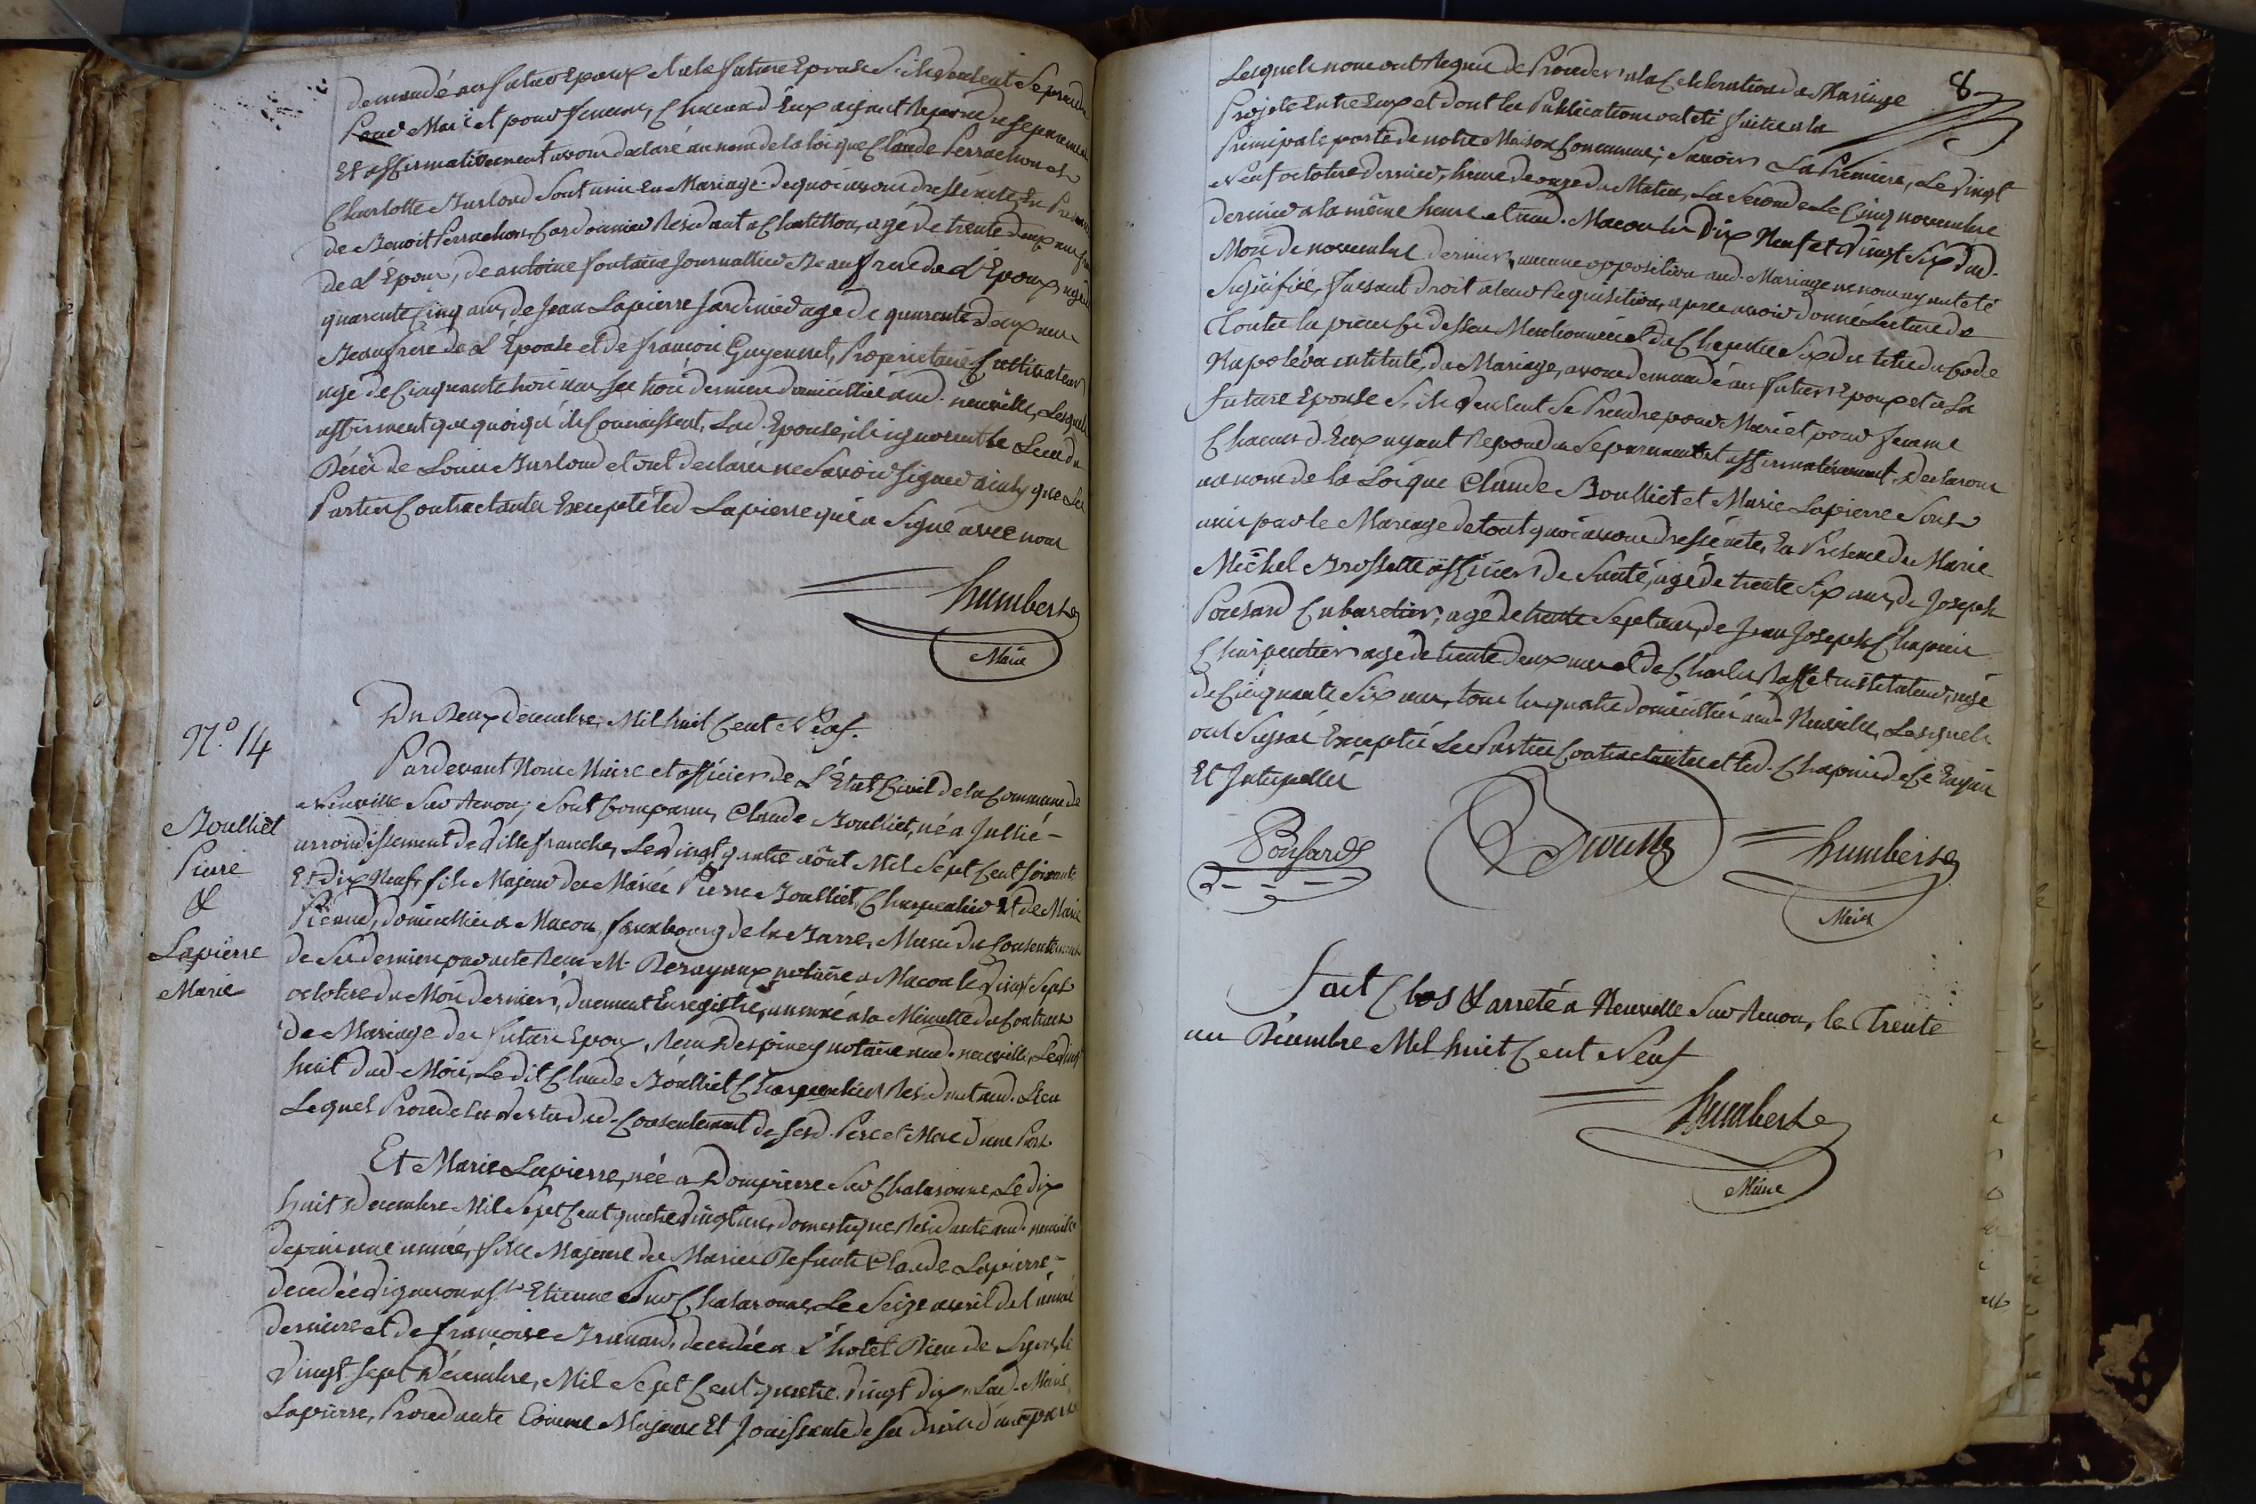 demandé au futur Epoux et a la future Epouse S'ils veulent Se prendre
Pour Mari et pour femme, Chacun d'Eux ayant Repondu separement
Et affirmativement avons declaré au nom de la loi que Claude Perrachon et
Charlotte Burloud Sont unis En Mariage. de quoi avons dressé acte En Presence
de Benoit Perrachon, Cordonnier Residant a Chatillon, agé de trente deux ans frere
de L'Epoux, de antoine fontaine Journallier Beaufrere de L'Epoux agé de
quarente Cinq ans, de Jean Lapierre Jardinier agé de quarente deux ans
Beaufrere de L'Epouse et de françois Guyennet, Proprietaire Cultivateur
agé de Cinquante trois ans les trois derniers domicilliés aud. neuville, Lesquels
affirment que quoiqu'ils Connaissent Lad. Epouse, ils ignorent le Lieu du
Décès de Louis Burloud et ont declaré ne Savoir Signer ainsy que Les
Parties Contractantes Excepté led Lapierre qui a Signé avec nous
humbert
Maire
N.° 14
Du Deux décembre, Mil huit Cent Neuf.
Boulliet
Pierre
&
Lapierre
Marie
Pardevant Nous Maire et officier de L'Etat Civil de la Commune de
Neuville Sur Renon; Sont Comparus, Claude Boulliet, né a Jullié -
arrondissement de Villefranche, Le vingt quatre aôut Mil Sept Cent Soixante
Et dix Neuf, fils Majeur des Mariés Pierre Boulliet, Charpentier Et de Marie
domicilliés a Macon, fauxbourg de la Barre, Muni du Consentement
de Ses derniers par acte Recu M. notaire a Macon le vingt Sept
octobre du Mois dernier, duement Enregistré, annexé a la Minutte du Contract
de Mariage des futurs Epoux, Recu Despiney notaire aud. neuville, Le vingt
huit dud. Mois, Le dit Claude Boulliet Charpentier Residant aud. Lieu
Lequel Procede En vertu dud. Consentement de Sesd. Pere et Mere d'une Part
Et Marie Lapierre, née a Dompierre Sur Chalaronne, Le dix
huit decembre Mil Sept Cent quatre vingt un, domestique Residante aud. neuville
depuis une année, fille Majeure des Mariés Defunts Claude Lapierre -
decedé vigneron a S.t Etienne Sur Chalaronne, Le Seize avril de l'année
derniere et de françoise decedée a L'hotel Dieu de Lyon, le
vingt Sept Décembre, Mil Sept Cent quatre vingt dix, Lad. Marie
Lapierre, Procedante Comme Majeure Et Jouissante de Ses Droits d'autre part
8
Lesquels nous ont Requis de Proceder a la Celebration du Mariage
Projeté Entre Eux et dont les Publications ont été faites a la
Principale porte de notre Maison Commune; Savoir La Premiere, Le vingt
Neuf octobre dernier, heure de onze du Matin, La Seconde Le Cinq novembre
dernier a la même heure et aud. Macon les Dix Neuf et vingt Six dud.
Mois de novembre dernier, aucune opposition aud. Mariage ne nous ayant été
Signifiée, faisant droit a leur Requisition, apres avoir donné Lecture de
Toutes les pieces Ci dessus Mentionnées et du Chapitre Six du titre du Code
Napoléon intitulé, du Mariage, avons demandé au futur Epoux et a La
future Epouse S'ils veulent Se Prendre pour Mari et pour femme
Chacun d'Eux ayant Repondu Separement et affirmativement, declarons
au nom de la Loi que Claude Boulliet et Marie Lapierre Sont
unis par le Mariage de tout quoi avons dressé acte, En Presence de Marie
Michel Brossette officier de Santé, agé de trente Six ans, de Joseph
Ponsard Cabaretier, agé de trente Sept ans, de Jean Joseph Chapuis
Charpentier agé de trente deux ans et de Charles instituteur, agé
de Cinquante Six ans, tous les quatre domicilliés aud. Neuville, Lesquels
ont Signé Exceptés Les Parties Contractantes et led. Chapuis de Ce Enquis
Et Interpellés
Ponsard
humbert
Maire
fait Clos & arreté a Neuville Sur Renon, le Trente
un Décembre Mil huit Cent Neuf
humbert
Maire